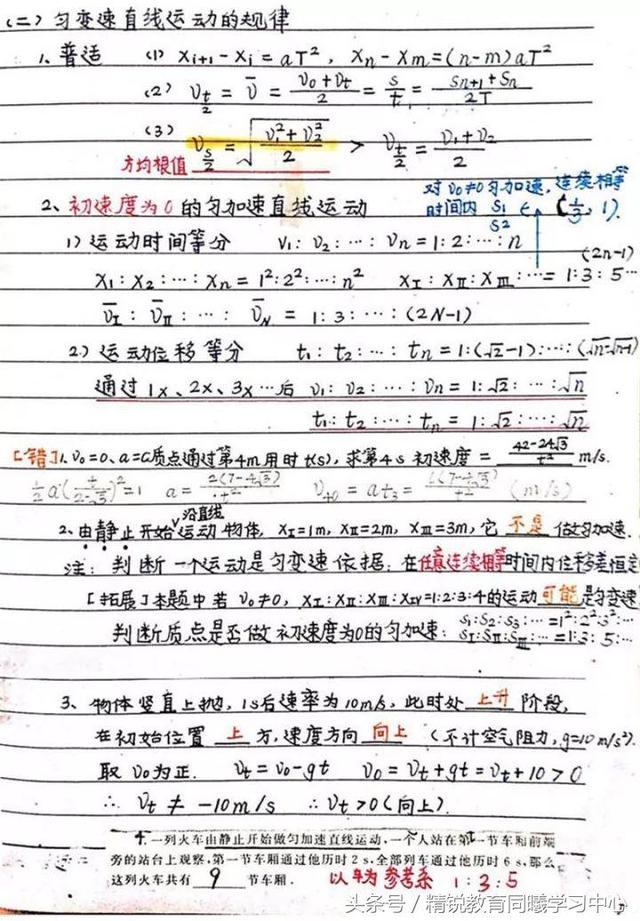 (二) 匀变速直线运动的规律
1、普适 (1) Xᵢ₊₁-Xᵢ=aT², Xn-Xm=(n-m)aT²
(2) υt/2=ῡ=(υ₀+υt)/2=s/t=(Sn+1+Sn)/2T
(3) υs/2=√((υ₁²+υ₂²)/2) > υt/2=(υ₁+υ₂)/2
方均根值
对υ₀≠0匀加速,连续相等
时间内 S1/S2 ∈ (1/3, 1).
2、初速度为0的匀加速直线运动
1) 运动时间等分 V₁:υ₂:…:υn=1:2:…:n
(2n-1)
X₁:X₂:…:Xn=1²:2²:…:n² XⅠ:XⅡ:XⅢ:…=1:3:5…
ῡⅠ:ῡⅡ:…:ῡN=1:3:…:(2N-1)
2) 运动位移等分 t₁:t₂:…:tn=1:(√2-1):…:(√n-√n-1)
通过1x、2x、3x…后 υ₁:υ₂:…:υn=1:√2:…:√n
t₁:t₂:…:tn=1:√2:…:√n
[错]1.υ₀=0、a=C质点通过第4m用时t(s),求第4s初速度=(42-24√3)/t² m/s.
½a(t/(2-√3))²=1 a=2(7-4√3)/t² at₃= (m/s)
2.由静止开始沿直线运动物体, XⅠ=1m, XⅡ=2m, XⅢ=3m,它不是做匀加速.
注: 判断一个运动是匀变速依据:在任意连续相等时间内位移差恒定
[拓展]本题中若υ₀≠0, XⅠ:XⅡ:XⅢ:XⅣ=1:2:3:4的运动可能是匀变速
判断质点是否做初速度为0的匀加速: S₁:S₂:S₃:…=1²:2²:3²…
SⅠ:SⅡ:SⅢ…=1:3:5:…
3、物体竖直上抛, 1s后速率为10m/s, 此时处上升阶段,
在初始位置上方,速度方向向上 (不计空气阻力,g=10m/s²).
取υ₀为正. υt=υ₀-gt υ₀=υt+gt=υt+10>0
∴υt≠-10m/s ∴υt>0(向上).
4.一列火车由静止开始做匀加速直线运动,一个人站在第一节车厢前端
旁的站台上观察,第一节车厢通过他历时2s,全部列车通过他历时6s,那么
这列火车共有 9 节车厢. 以车为参考系 1:3:5
头条号/精锐教育同曦学习中心